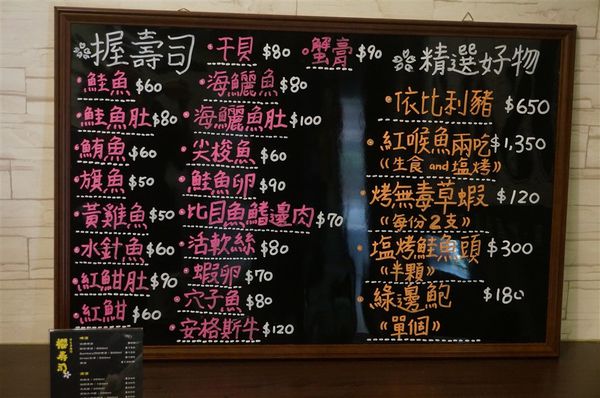 握壽司
鮭魚 $60
鮭魚肚 $80
鮪魚 $60
旗魚 $50
黃雞魚 $50
水針魚 $60
紅魽肚 $90
紅魽 $60
干貝 $80
海鱺魚 $80
海鱺魚肚 $100
尖梭魚 $60
鮭魚卵 $90
比目魚鰭邊肉 $70
活軟絲 $80
蝦卵 $70
穴子魚 $80
安格斯牛 $120
蟹膏 $90
精選好物
依比利豬 $650
紅喉魚兩吃 $1,350
《生食and塩烤》
烤無毒草蝦 $120
《每份2支》
塩烤鮭魚頭 $300
《半顆》
綠邊鮑 $180
《單個》
櫻壽司